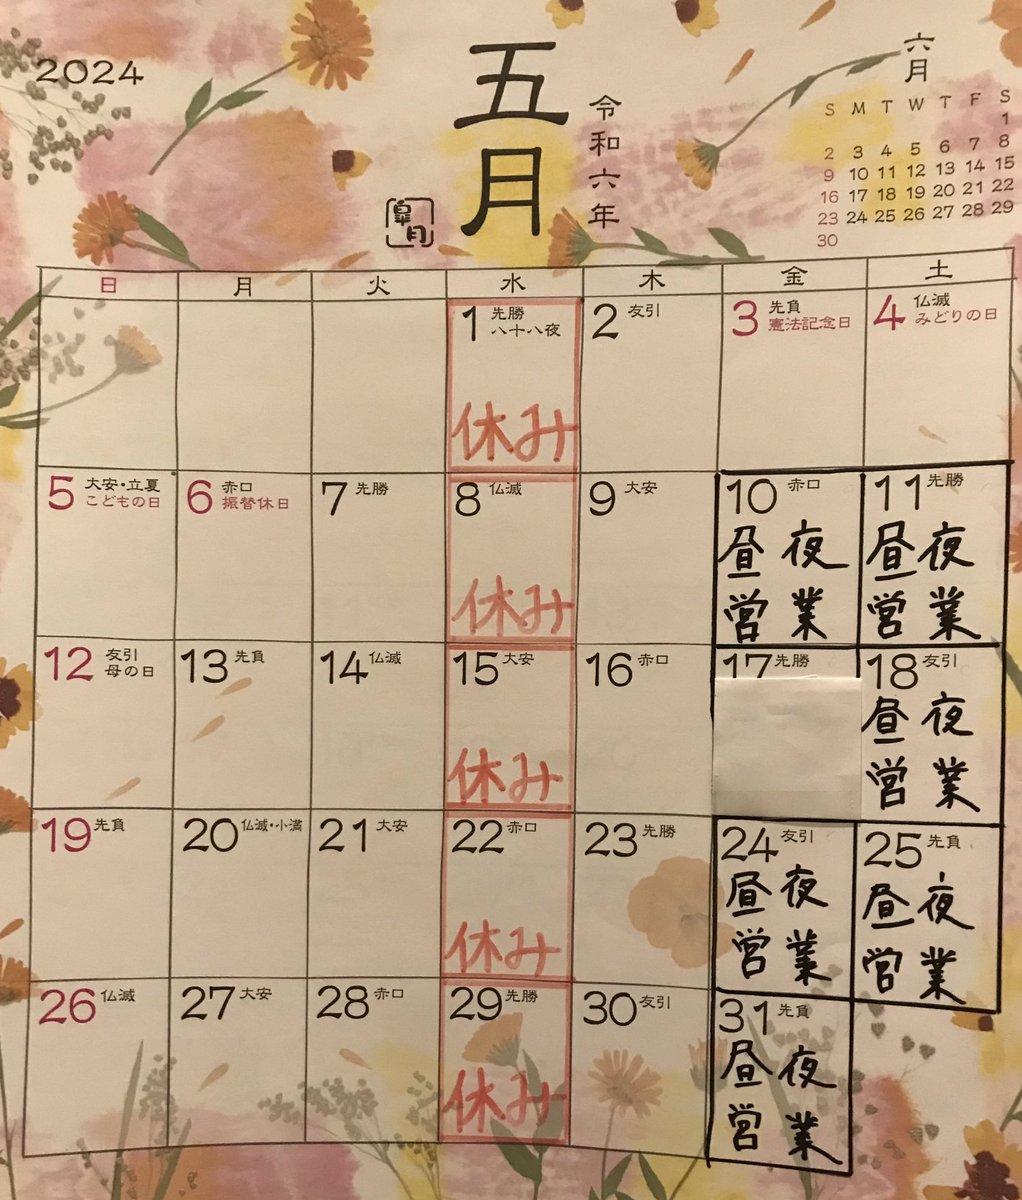 2024
五月
令和六年
皐月
六月
S M T W T F S
1
2 3 4 5 6 7 8
9 10 11 12 13 14 15
16 17 18 19 20 21 22
23 24 25 26 27 28 29
30
日 月 火 水 木 金 土
1 先勝
八十八夜
休み
2 友引
3 先負
憲法記念日
4 仏滅
みどりの日
5 大安・立夏
こどもの日
6 赤口
振替休日
7 先勝
8 仏滅
休み
9 大安
10 赤口
昼夜
営業
11 先勝
昼夜
営業
12 友引
母の日
13 先負
14 仏滅
15 大安
休み
16 赤口
17 先勝
18 友引
昼夜
営業
19 先負
20 仏滅・小満
21 大安
22 赤口
休み
23 先勝
24 友引
昼夜
営業
25 先負
昼夜
営業
26 仏滅
27 大安
28 赤口
29 先勝
休み
30 友引
31 先負
昼夜
営業